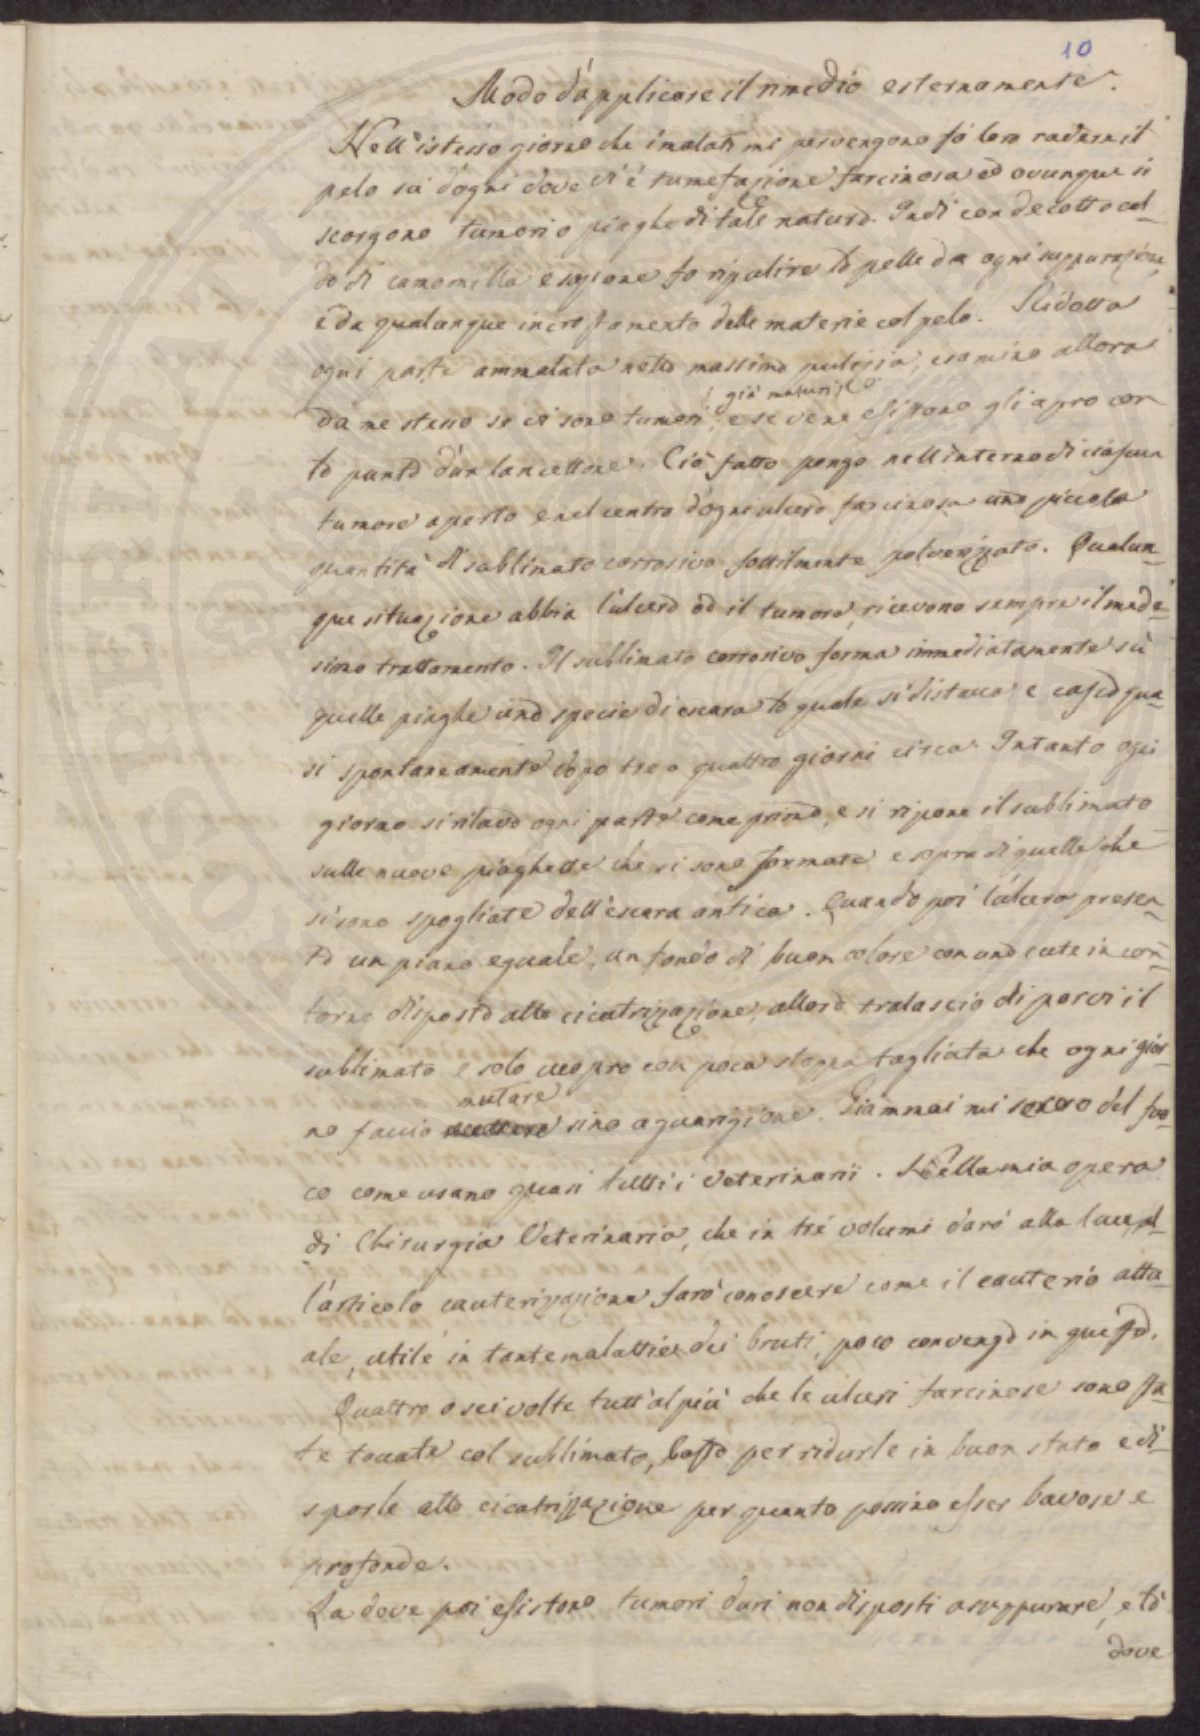 10
Modo d'applicare il rimedio esternamente.
Nell'istesso giorno che i malati mi pervengono fò loro radere il
pelo sù d'ogni dove vi è tumefazione farcinosa ed ovunque si
scorgono tumori o piaghe di tale natura. Indi con decotto cal-
do di camomilla e sapone fo ripulire la pelle da ogni suppurazione,
e da qualunque incrostamento delle materie col pelo. Ridotta
ogni parte ammalata nella massima pulizia, esamino allora
da me stesso se vi sono tumori già maturi, e se vene esistono gli apro con
la punta d'un lancettone. Ciò fatto pongo nell'interno di ciascun
tumore aperto e nel centro d'ogni ulcera farcinosa una piccola
quantità di sublimato corrosivo sottilmente polverizzato. Qualun-
que situazione abbia l'ulcera od il tumore, ricevono sempre il mede-
simo trattamento. Il sublimato corrosivo forma immediatamente sù
quelle piaghe una specie di escara la quale si distacca e casca qua-
si spontaneamente dopo tre o quattro giorni circa. Intanto ogni
giorno si rilava ogni parte come prima, e si ripone il sublimato
sulle nuove piaghette che si sono formate e sopra di quelle che
si sono spogliate dell'escara antica. Quando poi l'ulcera presen-
ta un piano eguale, un fondo di buon colore con una cute in con-
torno disposta alla cicatrizzazione, allora tralascio di porvi il
sublimato e solo cuopro con poca stoppa tagliata che ogni gior-
no faccio mutare sino a guarigione. Giammai mi servo del fuo-
co come usano quasi tutti i Veterinarii. Nella mia opera
di Chirurgia Veterinaria, che in tré volumi darò alla luce, al-
l'articolo cauterizzazione farò conoscere come il cauterio attu-
ale, utile in tante malattie dei bruti, poco convenga in questa.
Quattro o sei volte tutt'al più che le ulceri farcinose sono sta-
te toccate col sublimato, basta per ridurle in buon stato e di-
sporle alla cicatrizzazione per quanto possino esser bavose e
profonde.
La dove poi esistono tumori duri non disposti a suppurare, e la
dove